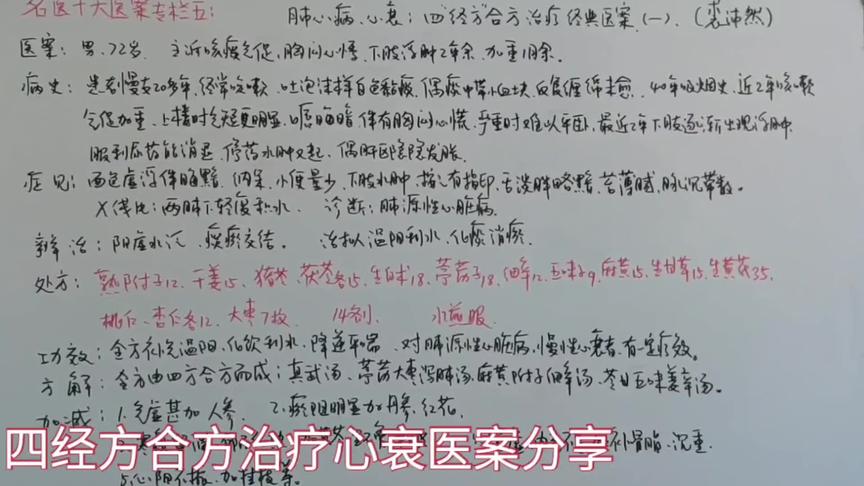 名医十大医案专栏五：
肺心病、心衰：四“经方”合方治疗经典医案（一）.（裘沛然）
医案：男、72岁. 主诉咳痰气促，胸闷心慌、下肢浮肿2年余、加重1月余。
病史：患者慢支20多年，经常咳嗽、吐泡沫样白色黏痰、偶痰中带小血块、反复缠绵未愈. 40年吸烟史、近2年咳嗽
气促加重、上楼时气短更明显、口唇晦暗、伴有胸闷心慌、严重时难以平卧、最近2年下肢逐渐出现浮肿
服利尿药能消退、停药水肿又起、偶肝区隐隐发胀.
症见：面色虚浮伴晦黯、纳呆、小便量少、下肢水肿、指之有指印、舌淡胖略黯、苔薄腻、脉沉带数。
X线片：两肺下轻度积水. 诊断：肺源性心脏病.
辨治：阳虚水泛、痰瘀交结。 治拟温阳利水、化痰消瘀.
处方：熟附子12、干姜15、猪苓、茯苓各15、生白术18、葶苈子18、细辛12、五味子9、麻黄15、生甘草15、生黄芪35.
桃仁、杏仁各12、大枣7枚. 14剂. 水煎服.
功效：全方祛浊温阳、化饮利水、降逆平喘. 对肺源性心脏病、慢性心衰者、有一定疗效。
方解：全方由四方合方而成：真武汤、葶苈大枣泻肺汤、麻黄附子细辛汤、苓甘五味姜辛汤。
加减：1.气虚甚加人参. 2.瘀阻明显加丹参、红花.
补骨脂、沉重.
5.心阳不振、加桂枝等。
四经方合方治疗心衰医案分享